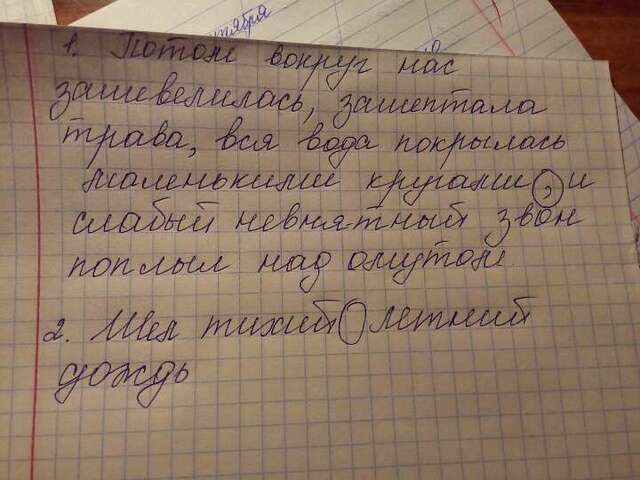 тября
1. Потом вокруг нас
зашевелилась, зашептала
трава, вся вода покрылась
маленькими кругами, и
слабый невнятный звон
поплыл над омутом
2. Шел тихий летний
дождь